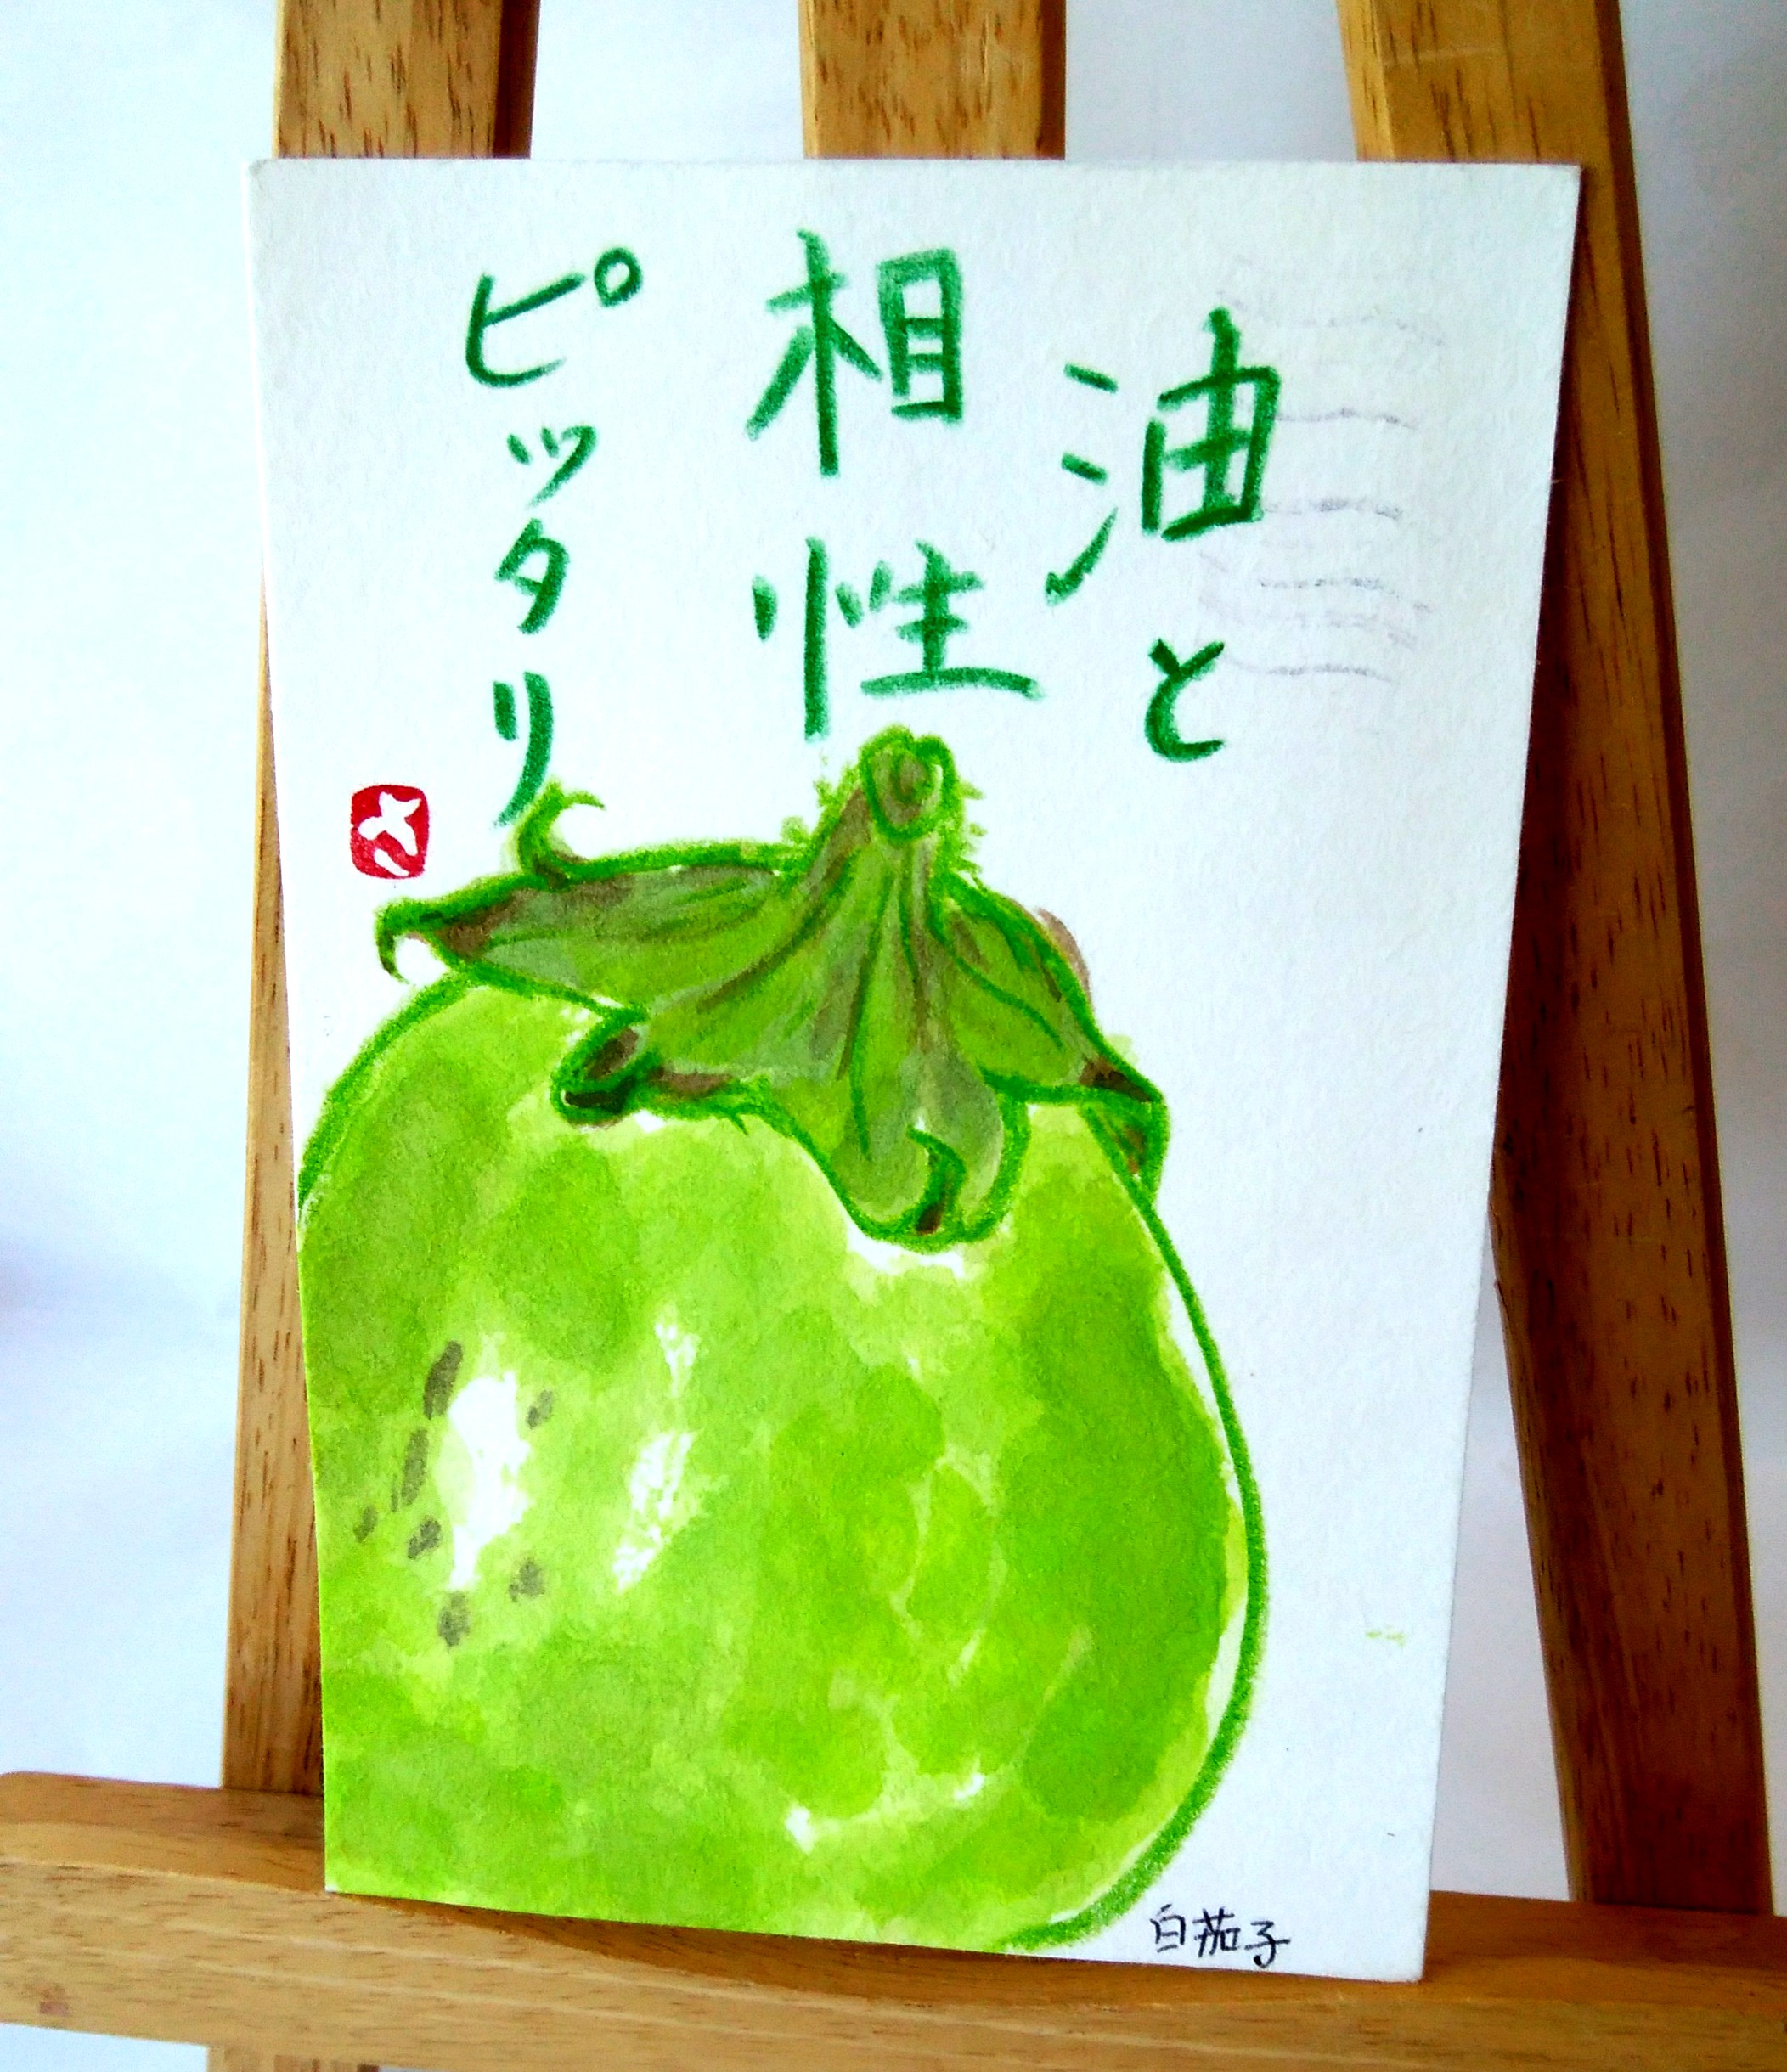 油と
相性
ピッタリ
さ
白茄子